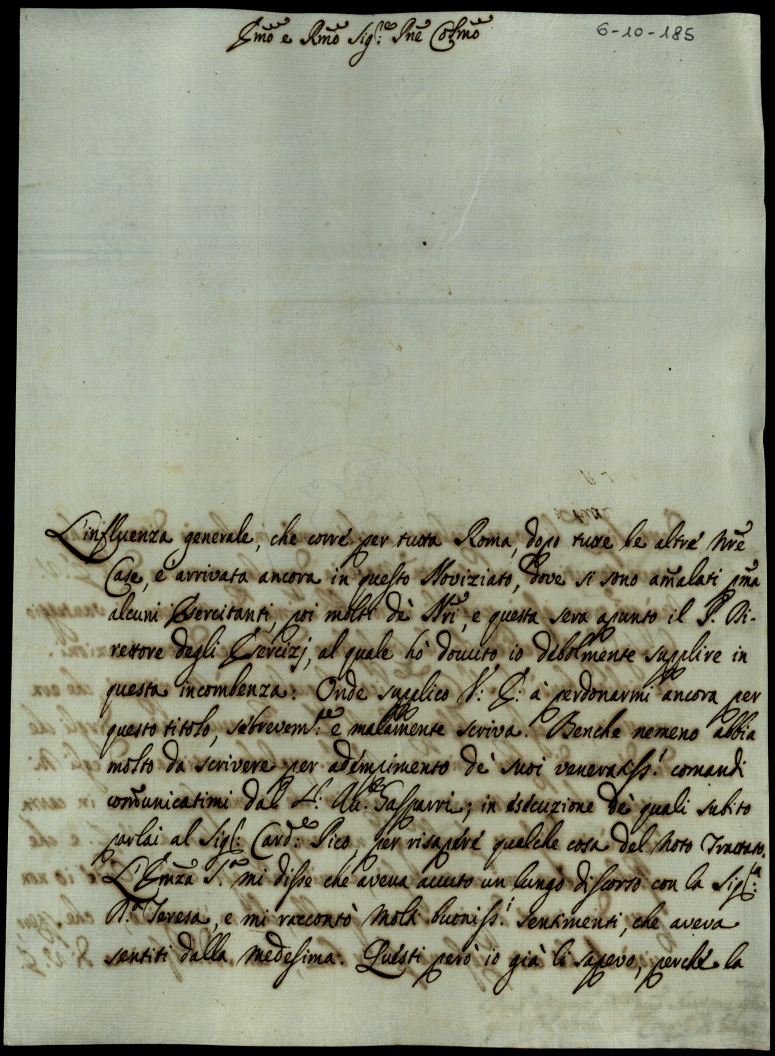 6-10-185
Emo e Rmo Sig.re Pne Colmo
L'influenza generale, che corre per tutta Roma, dopo tutte le altre Nre
Case, è arrivata ancora in questo Noviziato, dove si sono amalati pma
alcuni Esercitanti, poi molti de' Nri, e questa sera apunto il P. Di-
rettore degli Esercizj, al quale hò dovuto io debolmente supplire in
questa incombenza: Onde supplico V: E: à perdonarmi ancora per
questo titolo, se brevem.te e malamente scriva. Benche nemeno abbia
molto da scrivere per adempimento de' suoi veneratiss.i comandi
comunicatimi dal Gasparri; in esecuzione de' quali subito
parlai al Sig.r Card.le Pico, per risapére qualche cosa del noto Trattato.
L'Emza S.a mi disse che aveva avuto un lungo discorso con la Sig.ra
D.a Teresa, e mi raccontò molti buoniss.i sentimenti, che aveva
sentiti dalla medesima. Questi però io già li sapevo, perché la